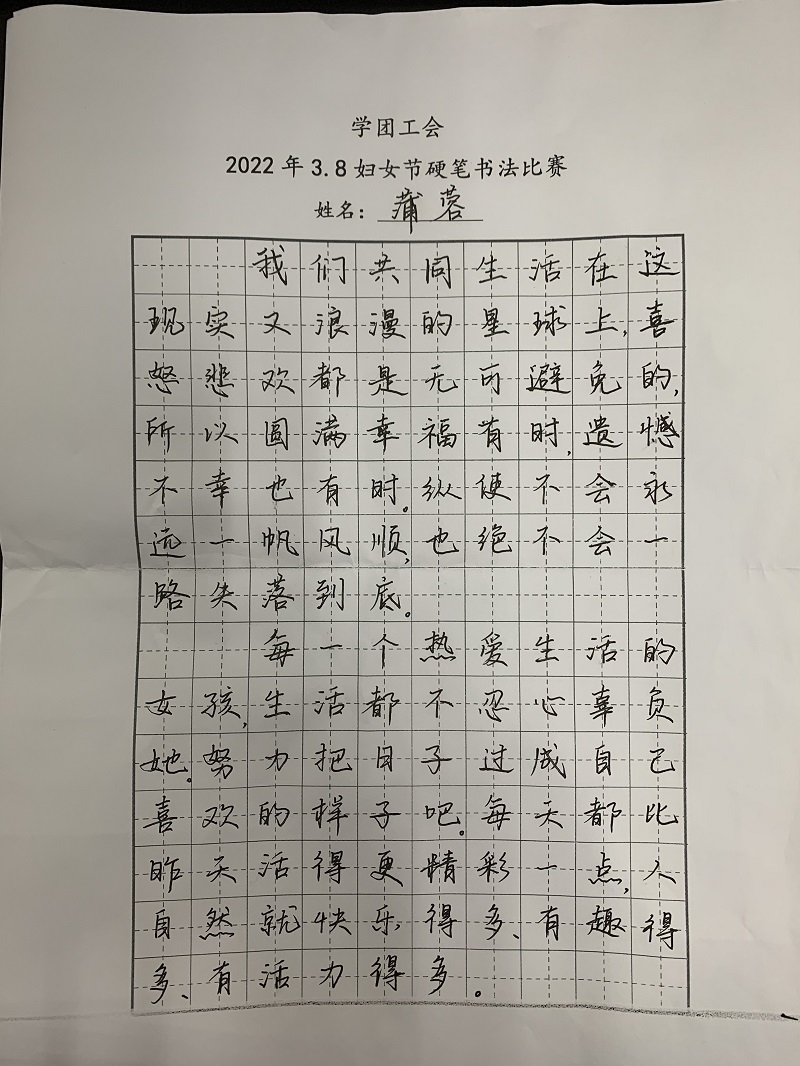 学团工会
2022 年 3.8 妇女节硬笔书法比赛
姓名：蒲蓉
我们共同生活在这
现实又浪漫的星球上,喜
怒悲欢都是无可避免的,
所以圆满幸福有时,遗憾
不幸也有时。纵使不会永
远一帆风顺,也绝不会一
路失落到底。
每一个热爱生活的
女孩,生活都不忍心辜负
她。努力把日子过成自己
喜欢的样子吧。每天都比
昨天活得更精彩一点,人
自然就快乐得多、有趣得
多、有活力得多。